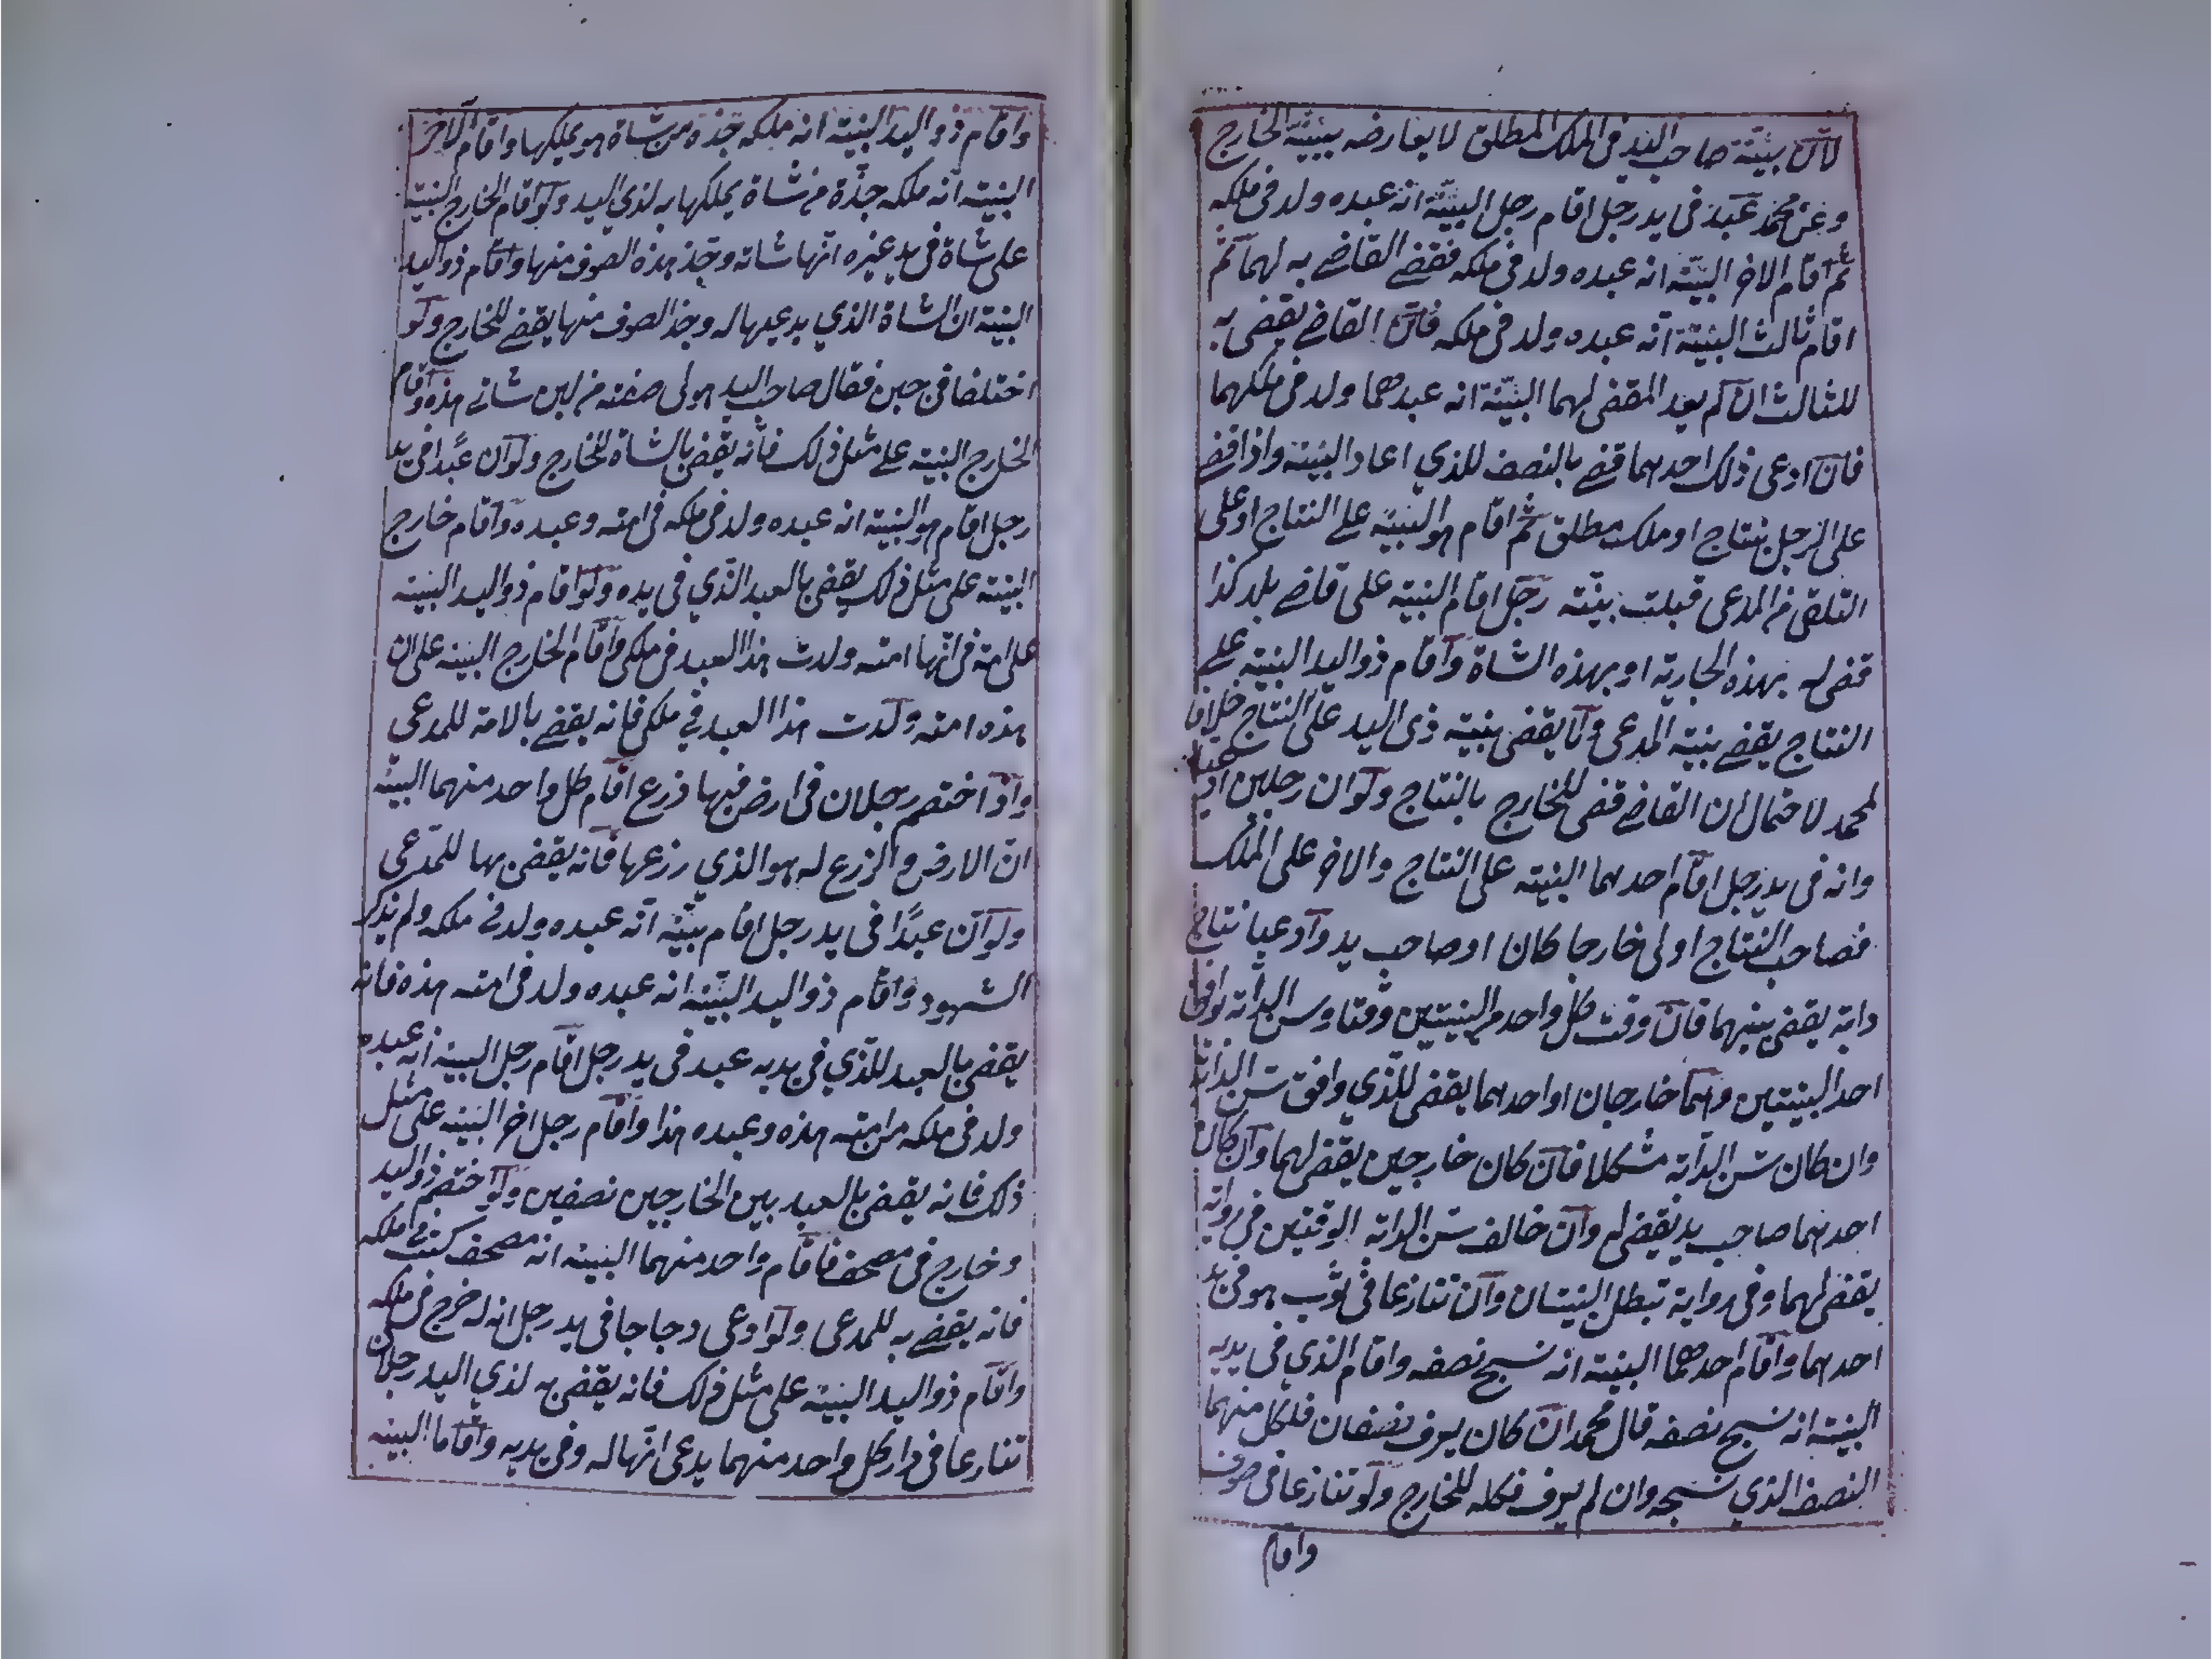 لان بينة صاحب اليد في الملك المطلق لا يعارضه ببينة الخارج
وعن محمد عبد في يد رجل اقام رجل البينة انه عبده ولد في ملكه
ثم اقام الاخر البينة انه عبده ولد في ملكه فقضي القاضي به لهما ثم
اقام ثالث البينة انه عبده ولد في ملكه فان القاضي يقضى به
للثالث ان لم يعد المقضى لهما البينة انه عبدهما ولد في ملكهما
فان ادعى ذلك احدهما قضي بالنصف للذي اعاد البينة واذا قضي
على الرجل بنتاج او ملك مطلق ثم اقام هو البينة على النتاج او على
التلقى من المدعى قبلت بينته رجل اقام البينة على قاضي بلد كذا
قضى له بهذه الجارية او بهذه الشاة واقام ذو اليد البينة على
النتاج يقضي ببينة المدعى ولا يقضى ببينة ذى اليد على النتاج خلافا
لمحمد لاحتمال ان القاضي قضى للخارج بالنتاج ولو ان رجلين
وانه في يد رجل اقام احدهما البينة على النتاج والاخر على الملك
فصاحب النتاج اولى خارجا كان او صاحب يد وادعيا نتاج
دابة يقضى بينهما فان وقت كل واحد من البينتين وقتا وسن الدابة توافق
احد البينتين وهما خارجان او احدهما يقضى للذي وافق سن الدابة
وان كان سن الدابة مشكلا فان كان خارجين يقضى لهما وان كان
احدهما صاحب يد يقضى له وان خالف سن الدابة الوقتين في رواية
يقضى لهما وفي رواية تبطل البينتان وان تنازعا في ثوب هو في يد
احدهما واقام احدهما البينة انه نسج نصفه واقام الذي في يديه
البينة انه نسج نصفه قال محمد ان كان يعرف نصفان فلكل منهما
النصف الذي نسجه وان لم يعرف فكله للخارج ولو تنازعا في صوف
واقام
واقام ذو اليد البينة انه ملكه جذه من شاة هو يملكها واقام الاخر
البينة انه ملكه جذه من شاة يملكها به لذي اليد ولو اقام الخارج البينة
على شاة في يد غيره انها شاته وجذ هذه الصوف منها واقام ذو اليد
البينة ان الشاة الذي يدعيها له وجذ الصوف منها يقضي للخارج ولو
اختلفا في جبن فقال صاحب اليد هو لى صنعته من لبن شاتي هذه واقام
الخارج البينة على مثل ذلك فانه يقضى بالشاة للخارج ولو ان عبدا في يد
رجل اقام هو البينة انه عبده ولد في ملكه في امته وعبده واقام خارج
البينة على مثل ذلك يقضى بالعبد الذي في يده ولو اقام ذو اليد البينة
على امة انها امته ولدت هذا العبد في ملكى واقام الخارج البينة على ان
هذه امته ولدت هذا العبد في ملكى فانه يقضي بالامة للمدعى
واذا اختصم رجلان في ارض فيها زرع اقام كل واحد منهما البينة
ان الارض والزرع له هو الذي زرعها فانه يقضى بها للمدعى
ولو ان عبدا في يد رجل اقام بينة انه عبده ولد في ملكه ولم يذكر
الشهود واقام ذو اليد البينة انه عبده ولد في امته هذه فانه
يقضى بالعبد للذي في يديه عبد في يد رجل اقام رجل البينة انه عبده
ولد في ملكه من امته هذه وعبده هذا واقام رجل اخر البينة على مثل
ذلك فانه يقضى بالعبد بين الخارجين نصفين ولو اختصم ذو اليد
وخارج في مصحف فاقام واحد منهما البينة انه مصحف كتبه في ملكه
فانه يقضي به للمدعى ولو ادعى دجاجا في يد رجل انه له خرج في ملكه
واقام ذو اليد البينة على مثل ذلك فانه يقضى به لذي اليد رجلان
تنازعا في دار كل واحد منهما يدعى انها له وفي يديه واقاما البينة